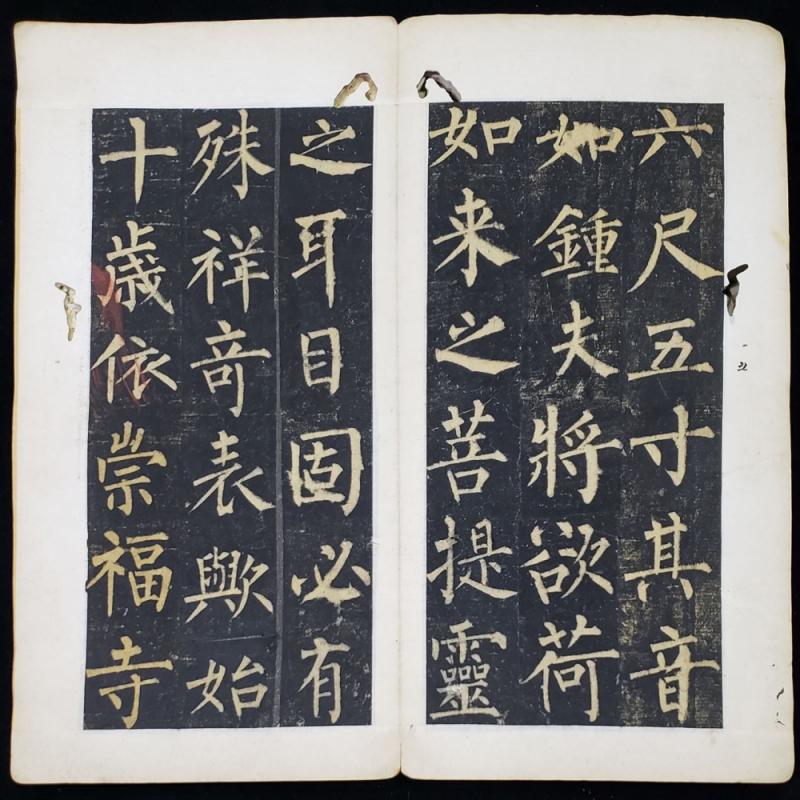 六尺五寸其音
如鍾夫將欲荷
如来之菩提靈
之耳目固必有
殊祥奇表歟始
十歳依崇福寺